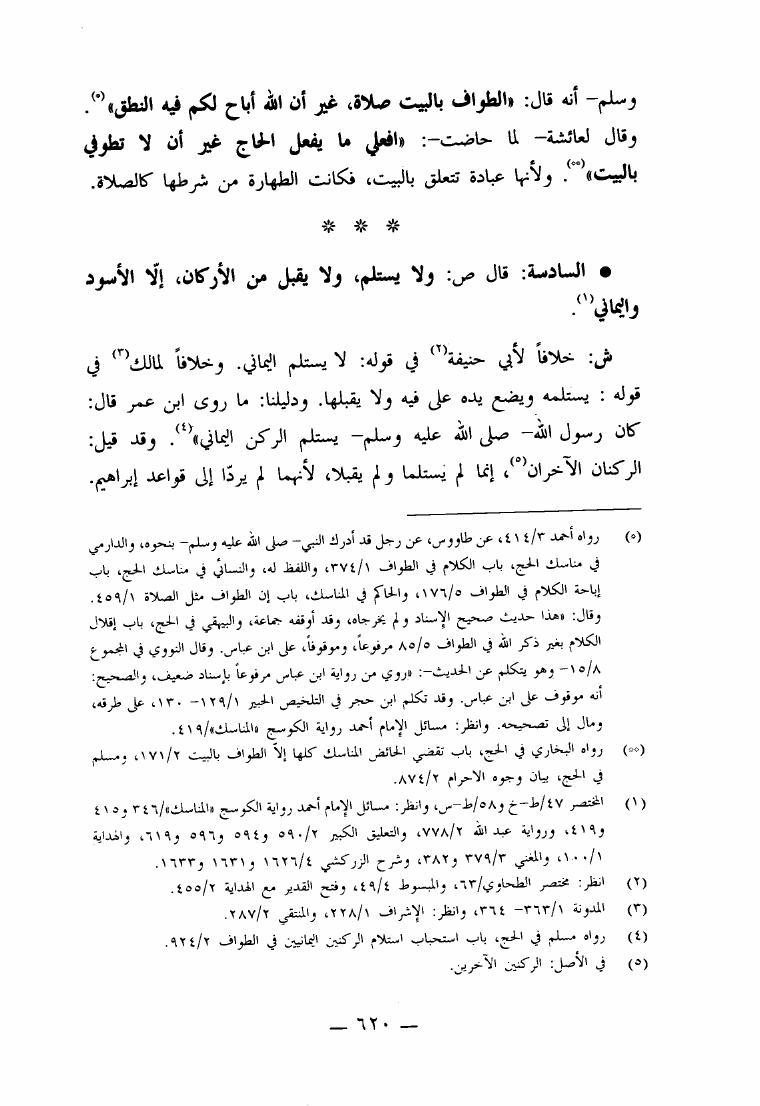 وسلم– أنه قال: «الطواف بالبيت صلاة، غير أن الله أباح لكم فيه النطق»(٥).
وقال لعائشة– لما حاضت–: «افعلي ما يفعل الحاج غير أن لا تطوفي
بالبيت»(٥٥). ولأنها عبادة تتعلق بالبيت، فكانت الطهارة من شرطها كالصلاة.
* * *
● السادسة: قال ص: ولا يستلم، ولا يقبل من الأركان، إلّا الأسود
واليماني(١).
ش: خلافاً لأبي حنيفة(٢) في قوله: لا يستلم اليماني. وخلافاً لمالك(٣) في
قوله : يستلمه ويضع يده على فيه ولا يقبلها. ودليلنا: ما روى ابن عمر قال:
كان رسول الله– صلى الله عليه وسلم– يستلم الركن اليماني»(٤). وقد قيل:
الركنان الآخران(٥)، إنما لم يستلما ولم يقبلا، لأنهما لم يردّا إلى قواعد إبراهيم.
(٥) رواه أحمد ٤١٤/٣، عن طاووس، عن رجل قد أدرك النبي– صلى الله عليه وسلم– بنحوه، والدارمي
في مناسك الحج، باب الكلام في الطواف ٣٧٤/١، واللفظ له، والنسائي في مناسك الحج، باب
إباحة الكلام في الطواف ١٧٦/٥، والحاكم في المناسك، باب إن الطواف مثل الصلاة ٤٥٩/١.
وقال: «هذا حديث صحيح الإسناد ولم يخرجاه، وقد أوقفه جماعة، والبيهقي في الحج، باب إقلال
الكلام بغير ذكر الله في الطواف ٨٥/٥ مرفوعاً، وموقوفاً، على ابن عباس. وقال النووي في المجموع
١٥/٨– وهو يتكلم عن الحديث–: «روي من رواية ابن عباس مرفوعاً بإسناد ضعيف، والصحيح:
أنه موقوف على ابن عباس. وقد تكلم ابن حجر في التلخيص الحبير ١٢٩/١– ١٣٠، على طرقه،
ومال إلى تصحيحه. وانظر: مسائل الإمام أحمد رواية الكوسج «المناسك»/٤١٩.
(٥٥) رواه البخاري في الحج، باب تقضي الحائض المناسك كلها إلاّ الطواف بالبيت ١٧١/٢، ومسلم
في الحج، بيان وجوه الاحرام ٨٧٤/٢.
(١) المختصر ٤٧/ط–خ و٥٨/ط–س، وانظر: مسائل الإمام أحمد رواية الكوسج «المناسك»/٣٤٦ و٤١٥
و٤١٩، ورواية عبد الله ٧٧٨/٢، والتعليق الكبير ٥٩٠/٢ و٥٩٤ و٥٩٦ و٦١٩، والهداية
١٠٠/١، والمغني ٣٧٩/٣ و٣٨٢، وشرح الزركشي ١٦٢٦/٤ و١٦٣١ و١٦٣٣.
(٢) انظر: مختصر الطحاوي/٦٣، والمبسوط ٤٩/٤، وفتح القدير مع الهداية ٤٥٥/٢.
(٣) المدونة ٣٦٣/١– ٣٦٤، وانظر: الإشراف ٢٢٨/١، والمنتقي ٢٨٧/٢.
(٤) رواه مسلم في الحج، باب استحباب استلام الركنين اليمانيين في الطواف ٩٢٤/٢.
(٥) في الأصل: الركنين الآخرين.
— ٦٢٠ —